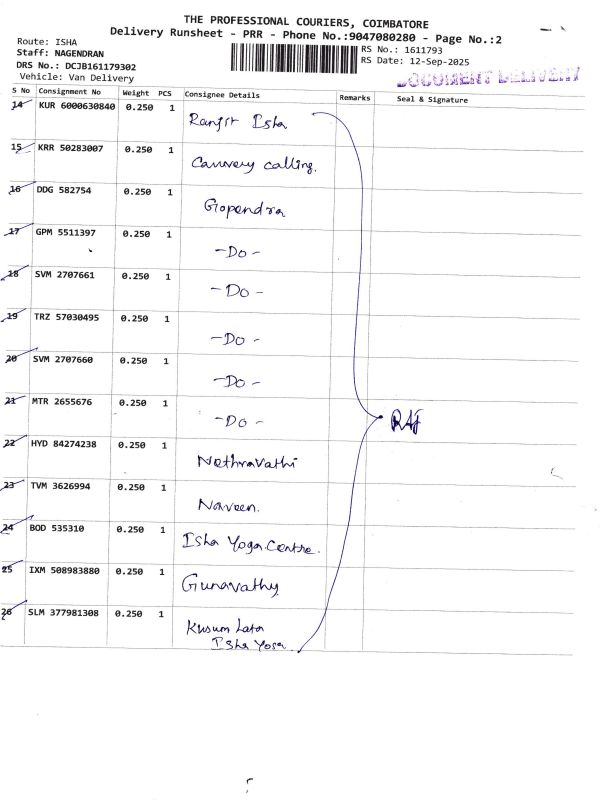 THE PROFESSIONAL COURIERS, COIMBATORE
Delivery Runsheet - PRR - Phone No.:9047080280 - Page No.:2
Route: ISHA
Staff: NAGENDRAN
DRS No.: DCJB161179302
Vehicle: Van Delivery
RS No.: 1611793
RS Date: 12-Sep-2025
DOCUMENT DELIVERY
S No Consignment No Weight PCS Consignee Details Remarks Seal & Signature
14 KUR 6000630840 0.250 1 Ranjit Isha
15 KRR 50283007 0.250 1 Cauvery calling.
16 DDG 582754 0.250 1 Gopendra
17 GPM 5511397 0.250 1 -Do-
18 SVM 2707661 0.250 1 -Do-
19 TRZ 57030495 0.250 1 -Do-
20 SVM 2707660 0.250 1 -Do-
21 MTR 2655676 0.250 1 -Do-
22 HYD 84274238 0.250 1 Nethravathi
23 TVM 3626994 0.250 1 Naveen.
24 BOD 535310 0.250 1 Isha Yoga Centre.
25 IXM 508983880 0.250 1 Gunavathy
26 SLM 377981308 0.250 1 Kusum Lata
Isha Yoga